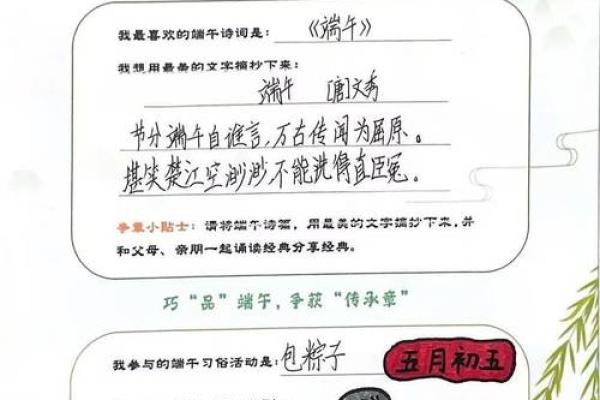 我最喜欢的端午诗词是：《端午》
我想用最美的文字摘抄下来：
端午 [唐]文秀
节分端午自谁言，万古传闻为屈原。
堪笑楚江空渺渺，不能洗得直臣冤。
争章小贴士：请将端午诗篇，用最美的文字摘抄下来，并
和父母、亲朋一起诵读经典分享经典。
巧“品”端午，争获“传承章”
我参与的端午习俗活动是：包粽子
五月初五